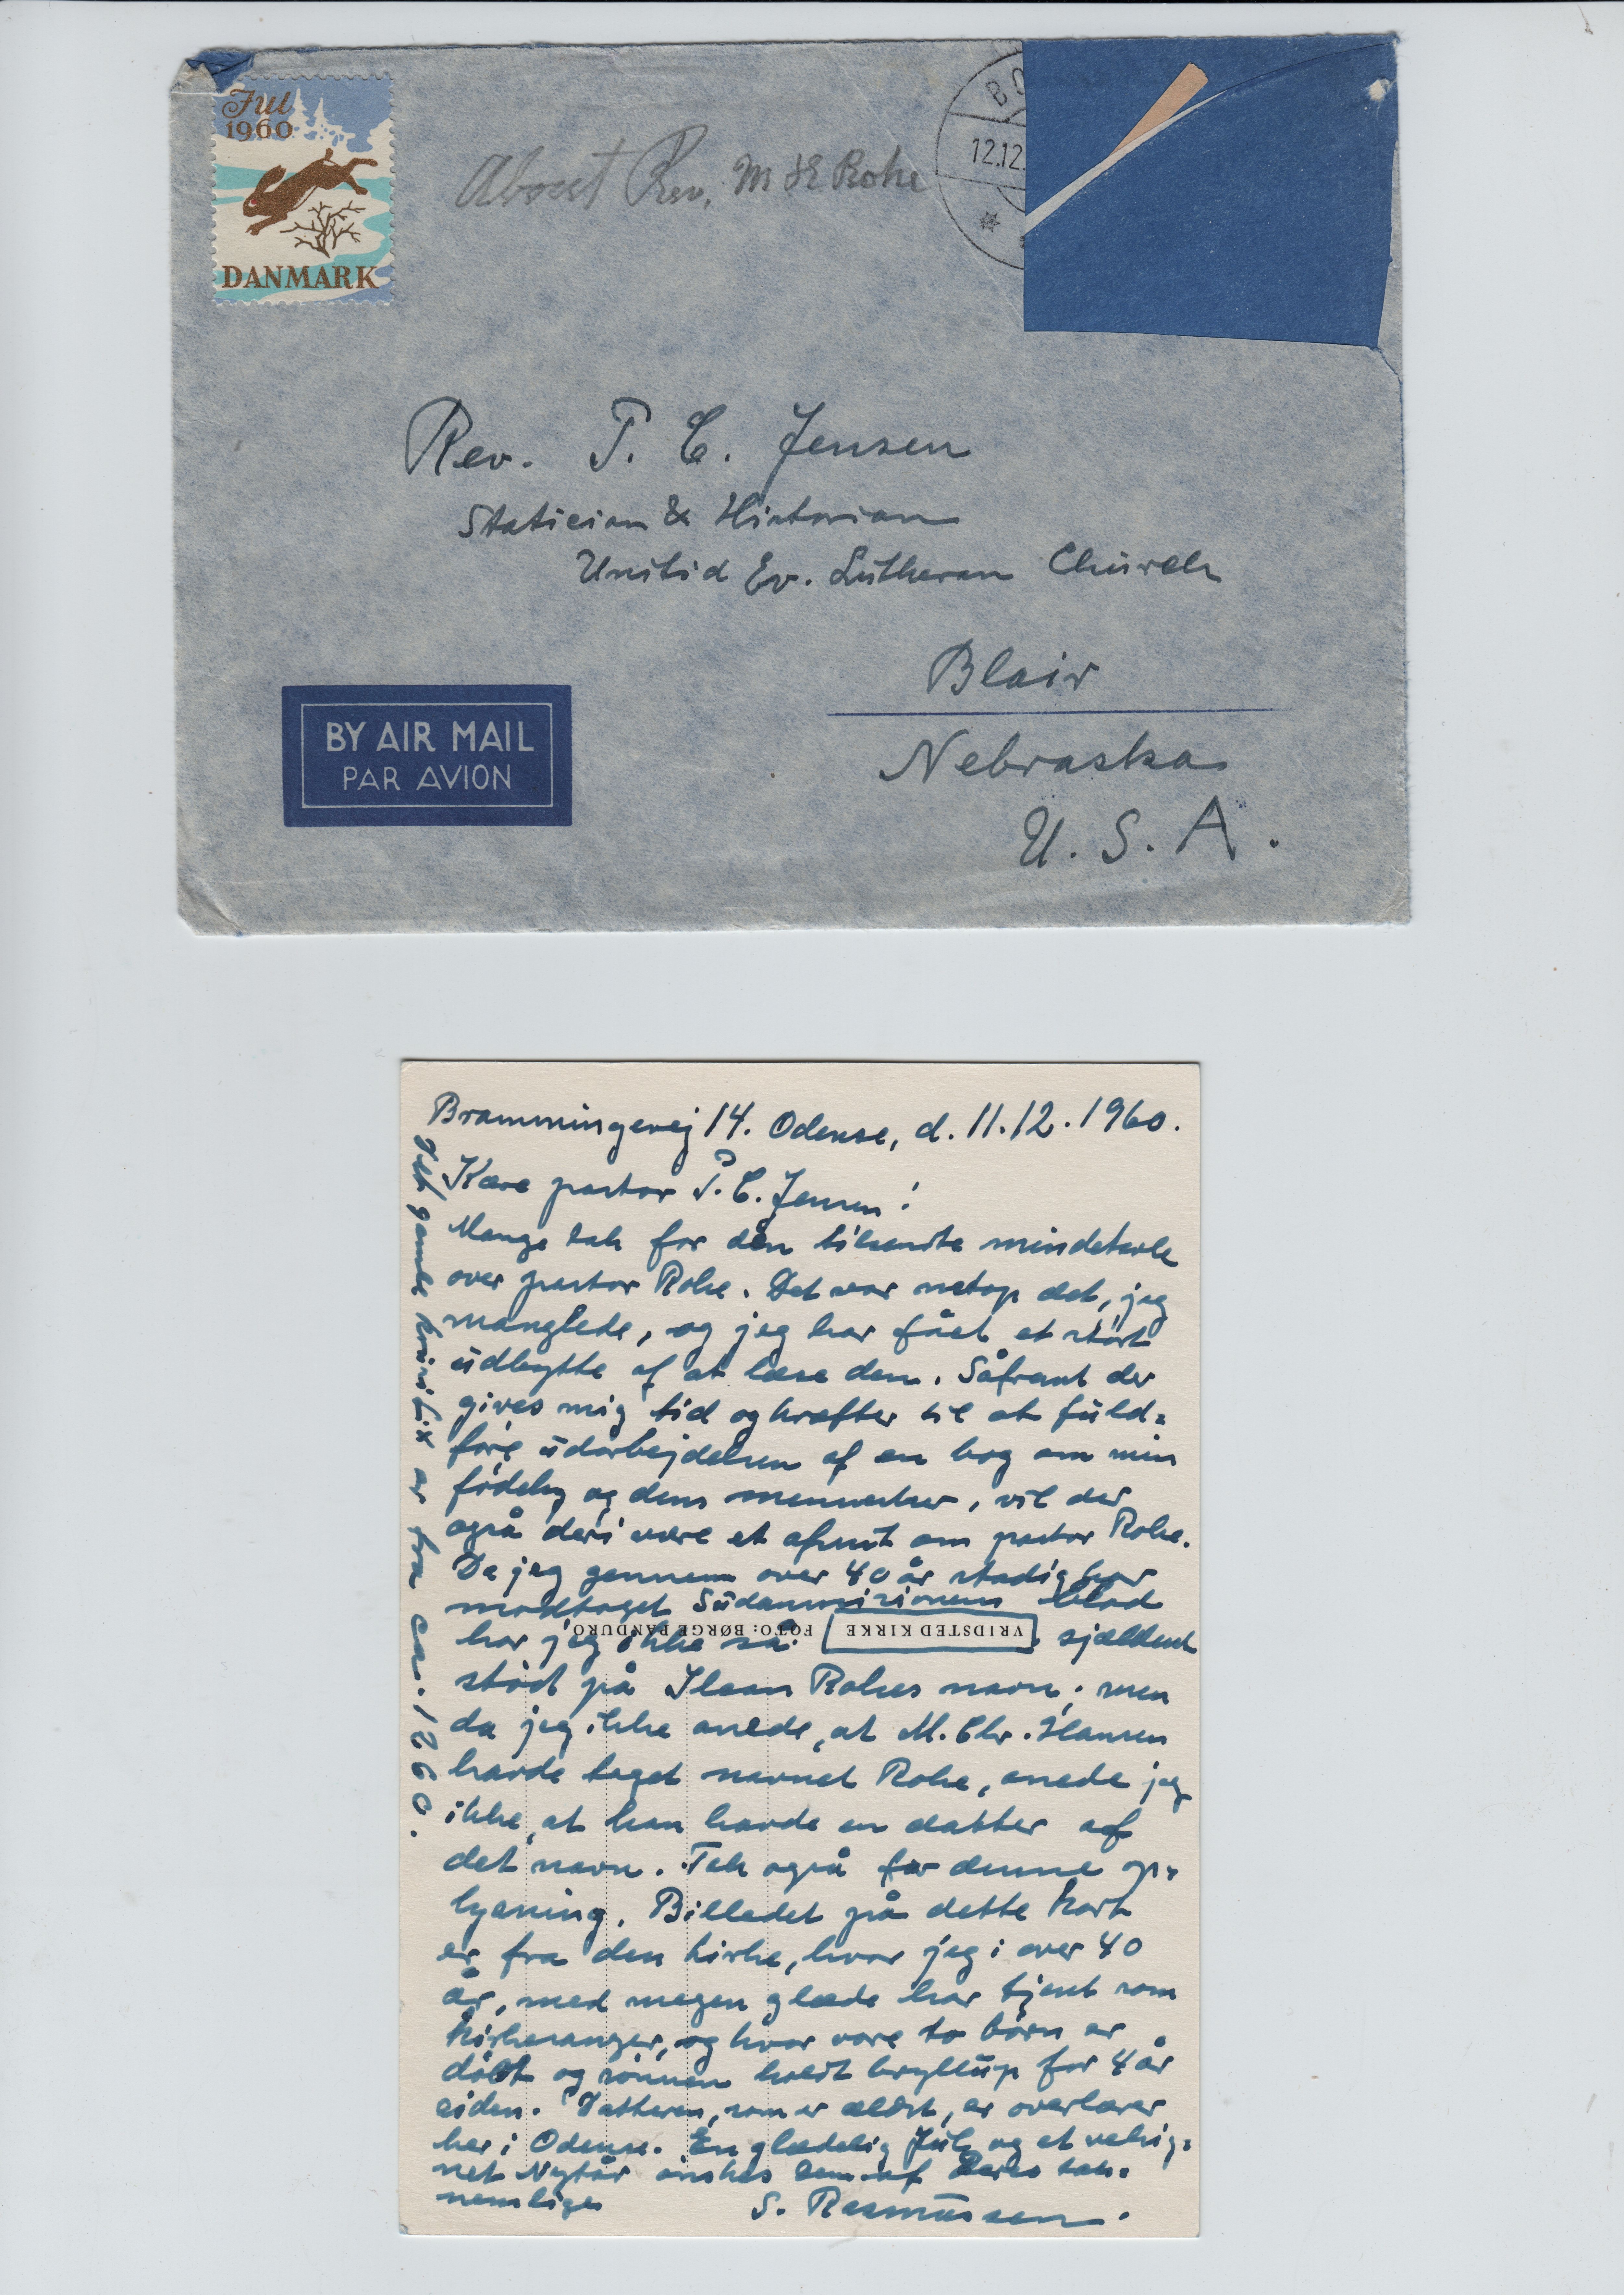 Jul
1960
DANMARK
About Rev. M Chr Rohe
BO
12.12.
Rev. P. C. Jensen
Statician & Historian
United Ev. Lutheran Church
Blair
Nebraska
U. S. A.
BY AIR MAIL
PAR AVION
Brammingevej 14. Odense, d. 11.12.1960.
Kære pastor P. C. Jensen!
Mange tak for den tilsendte mindetale
over pastor Rohe. Det var netop det, jeg
manglede, og jeg har fået et stort
udbytte af at læse den. Såfremt der
gives mig tid og kræfter til at fuld=
føre udarbejdelsen af en bog om min
fødeby og dens mennesker, vil der
også deri være et afsnit om pastor Rohe.
Da jeg gennem over 40 år stadig har
modtaget Sudanmisionens blad
har jeg ikke så sjældent
VRIDSTED KIRKE
FOTO: BØRGE PANDURO
stødt på Rohes navn; men
da jeg ikke anede, at M. Chr. Hansen
havde taget navnet Rohe, anede jeg
ikke, at han havde en datter af
det navn. Tak også for denne op=
lysning. Billedet på dette kort
er fra den kirke, hvor jeg i over 40
år, med megen glæde har tjent som
kirkesanger, og hvor vore to børn er
døbt og sønnen holdt bryllup for 4 år
siden. Datteren, som er ældst, er overlærer
her i Odense. En glædelig Jul og et velsig=
net Nytår ønskes Dem af Deres tak=
nemlige
S. Rasmussen.
gamle krusifix er fra ca. 1260.